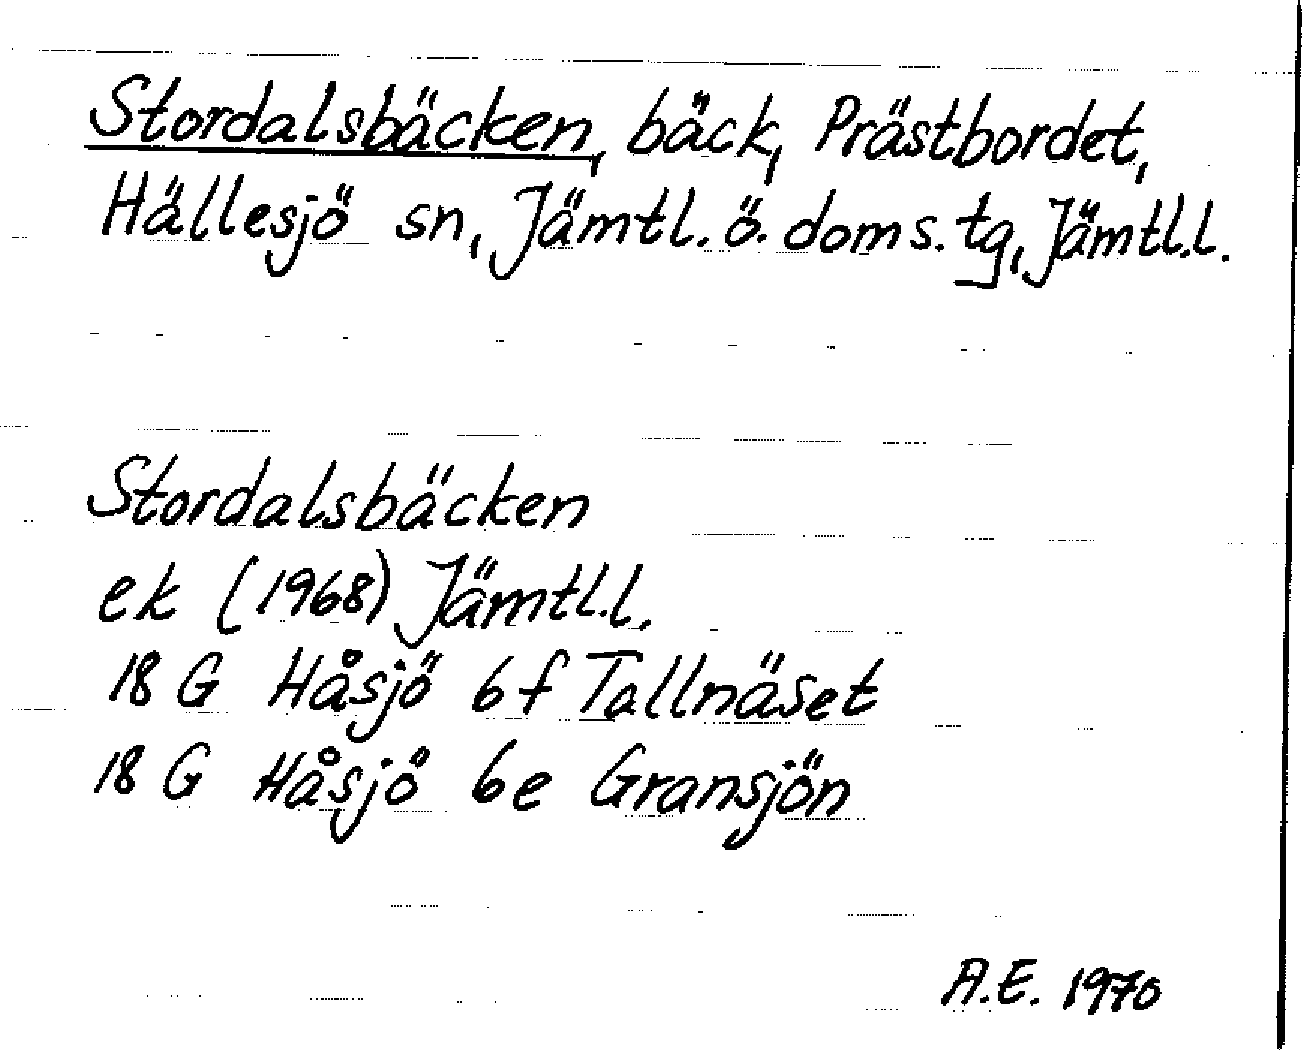 Stordalsbäcken, bäck, Prästbordet,
Hällesjö sn, Jämtl. ö. doms. tg, Jämtl.l.
Stordalsbäcken
ek (1968) Jämtl.l.
18 G Håsjö 6f Tallnäset
18 G Håsjö 6e Gransjön
A.E. 1970